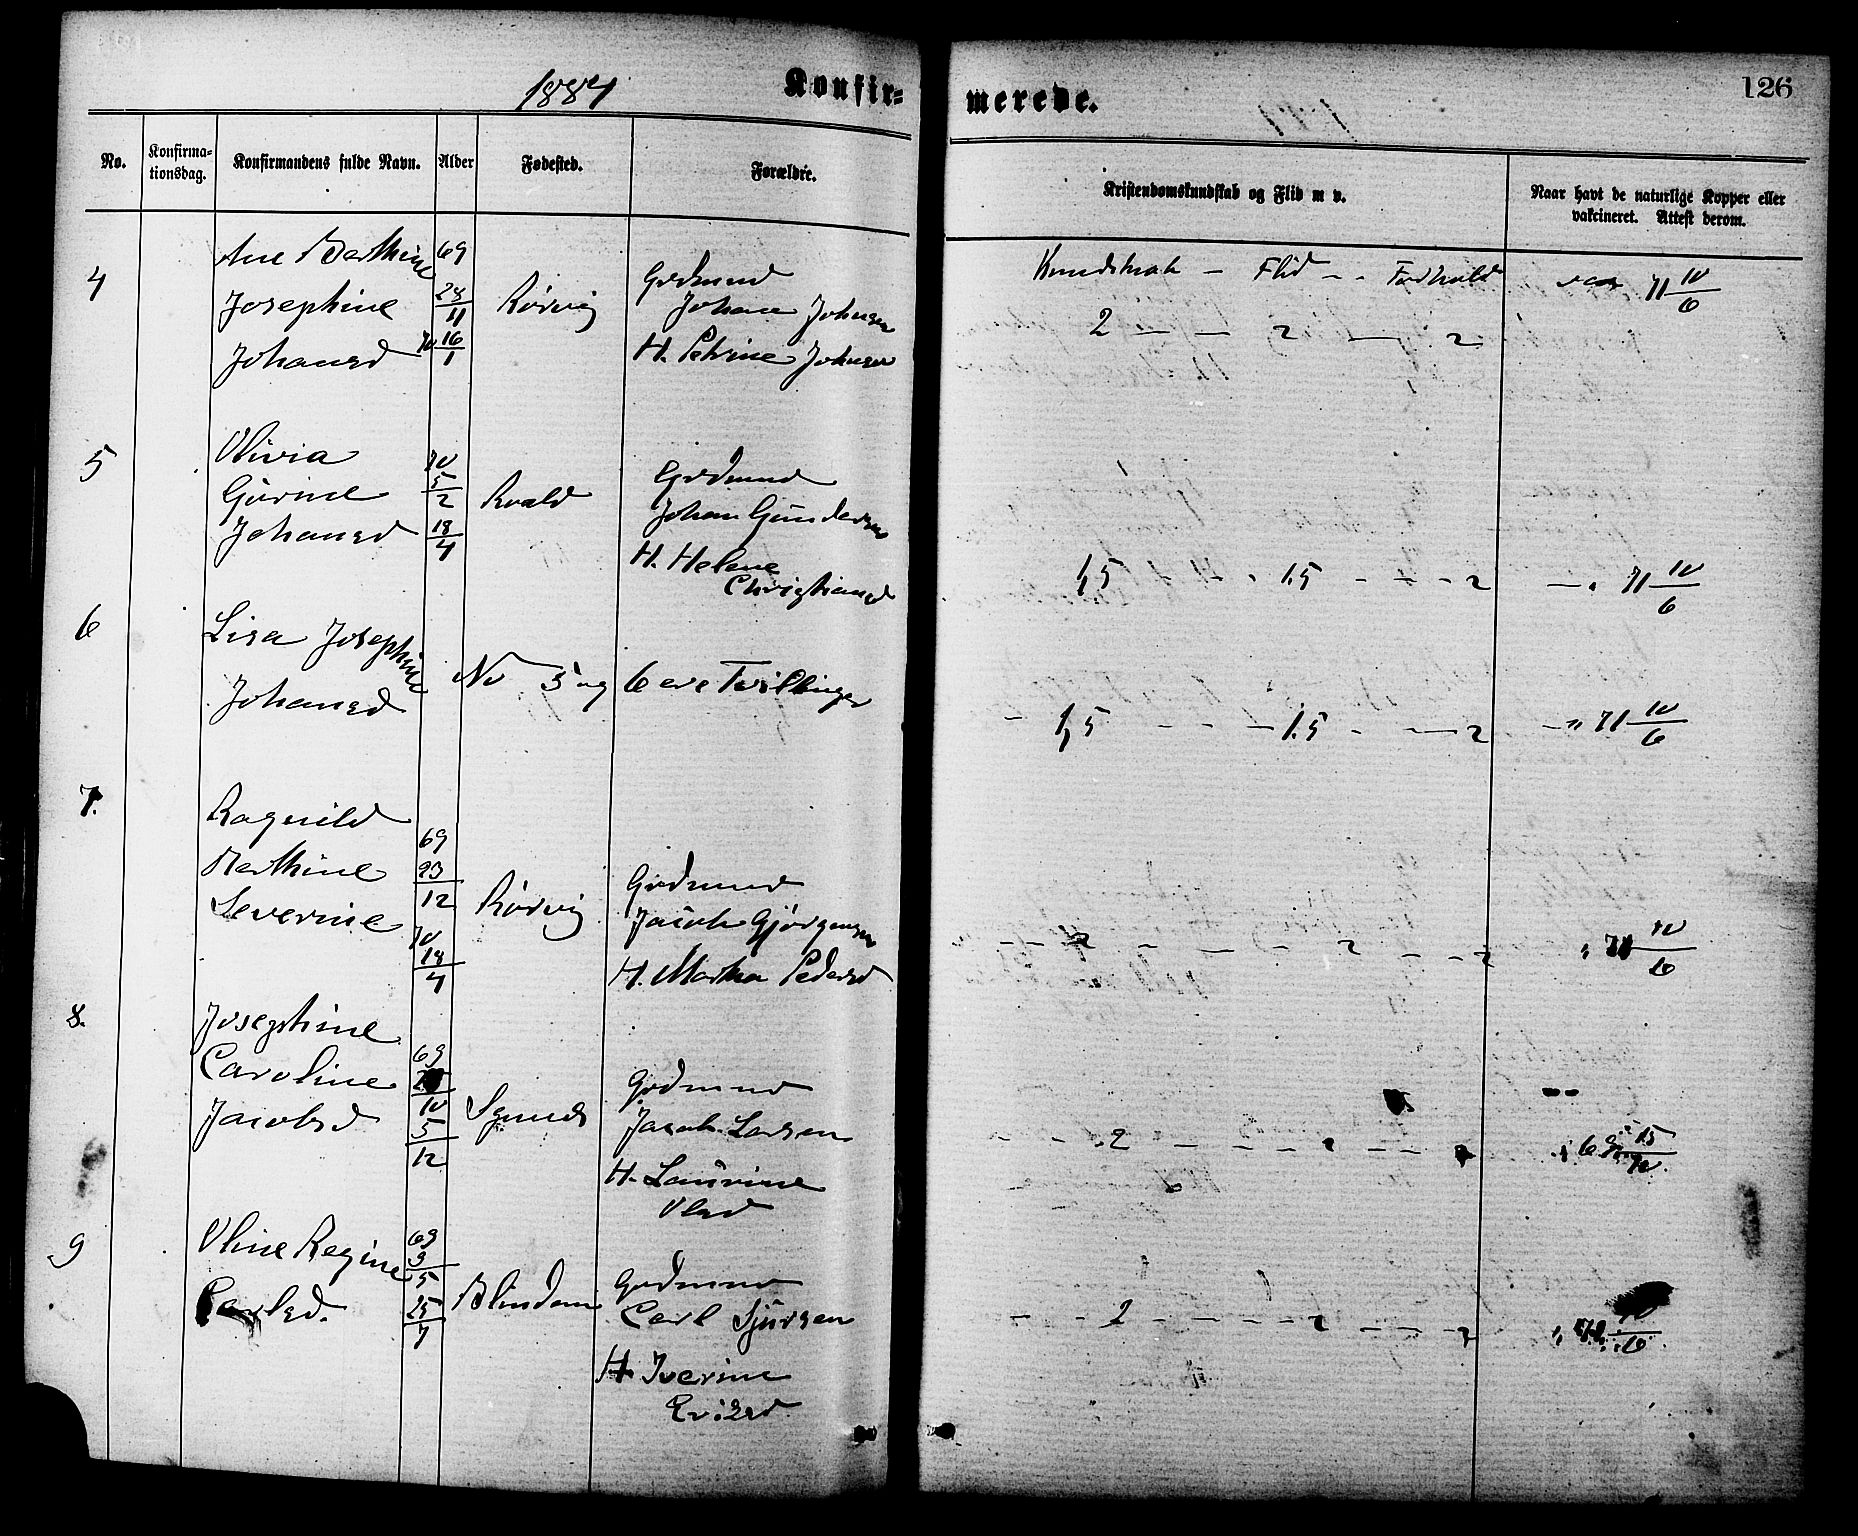 1884
Konfir=
merede.
126
No.
Konfirma-
tionsdag.
Konfirmandens fulde Navn.
Alder
Fødested.
Forældre.
Kristendomskundskab og Flid m v.
Naar havt de naturlige Kopper eller
vakcineret. Attest derom.
4
Ane Berthine
Josephine
Johansd
69
28/11
70 16/1
Rørvig
Godmand
Johan Johnsen
H. Petrine Johnsen
Kundskab - Flid - - Forhold
2 - - 2 - 2
vac 71 10/6
5
Olivia
Gurine
Johansd
70
5/2
18/4
Roald
Godmand
Johan Gundersen
H. Helene
Christiansd
1,5 - 1.5 - - - 2
- " 71 10/6
6
Lisa Josephine
Johansd
No 5 og 6 ere Tvillinger
- 1,5 - - - 1.5 - - 2
- " 71 10/6
7.
Ragnild
Marthine
Severine
69
23/12
70
18/4
Rørvig
Godmand
Jacob Gjørgensen
H. Martha Pedersd
- - 2 - - - 2 - - 2
" 71 10/6
8.
Josephine
Caroline
Jacobsd
69
10
5/12
Godmand
Jacob Larsen
H. Laurine
Olsd
- - 2 - - 2 - -
" 69 15
9
Oline Regine
Carlsd.
69
3/5
25/7
Blindem
Godmand
Carl Sjursen
H. Iverine
- - 2 - - - 2 - - 2